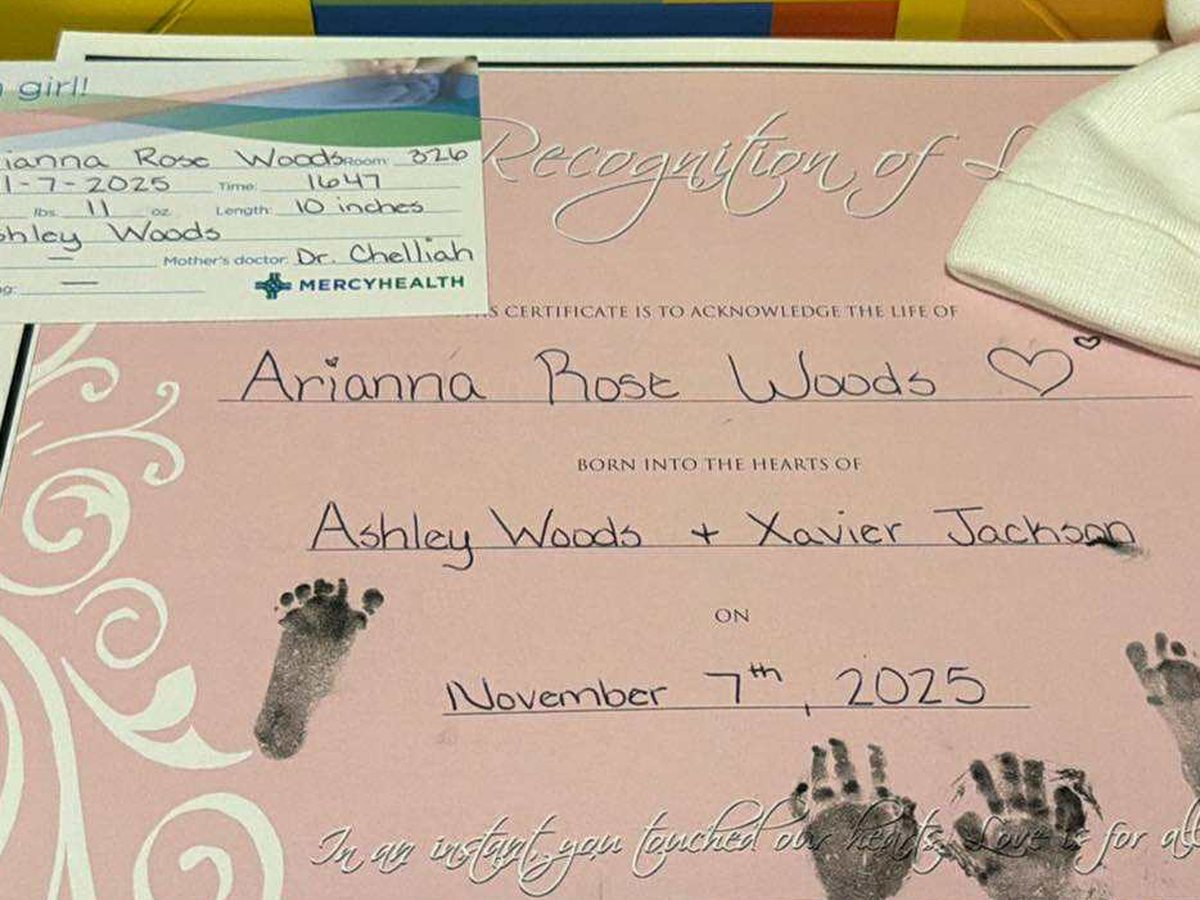 girl!
ianna Rose Woods Room: 326
1-7-2025 Time: 1647
lbs. 11 oz. Length: 10 inches
shley Woods
— Mother's doctor: Dr. Chelliah
g: — MERCYHEALTH
Recognition of L
S CERTIFICATE IS TO ACKNOWLEDGE THE LIFE OF
Arianna Rose Woods
BORN INTO THE HEARTS OF
Ashley Woods + Xavier Jackson
ON
November 7th, 2025
In an instant you touched our hearts. Love is for al